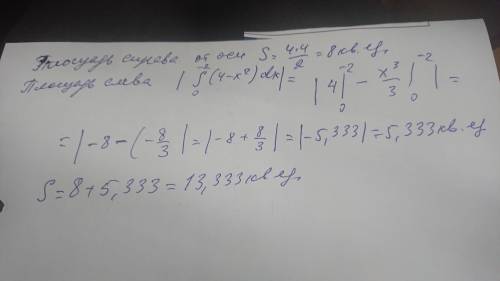 Площадь справа от оси S = 4·4/2 = 8 кв. ед,
Площадь слева |∫₀⁻² (4-x²)dx| = |4|₀⁻² - x³/3|₀⁻²| =
= |-8-(-8/3| = |-8+8/3| = |-5,333| = 5,333 кв. ед
S = 8+5,333 = 13,333 кв ед,